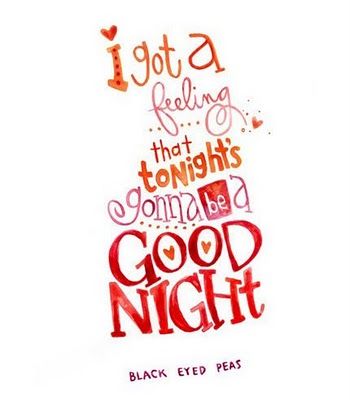 i got a
feeling
that
toNight's
gonna be a
GOOD
NIGHt
BLACK EYED PEAS